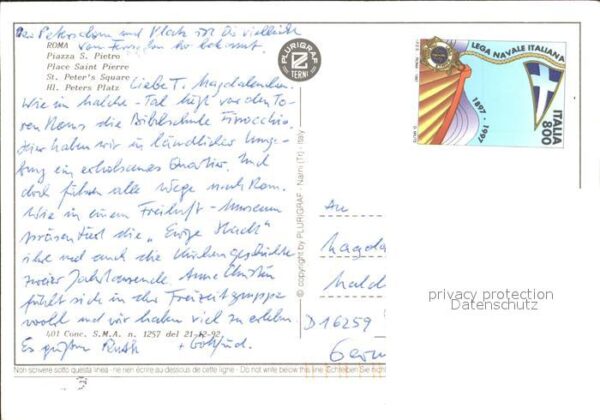 Petersdom und Platz ist Dir vielleicht
vom Fernsehen her bekannt.
ROMA
Piazza S. Pietro
Place Saint Pierre
St. Peter's Square
Hl. Peters Platz
PLURIGRAF
TERNI
Liebe T. Magdalenchen.
Wie in Malche-Tal liegt vor den To-
ren Roms die Bibelschule Finocchio.
Hier haben wir in ländlicher Umge-
bung ein erholsames Quartier. Und
doch führen alle Wege nach Rom.
Wie in einem Freiluft-Museum
präsentiert die „Ewige Stadt"
ihre und auch die Kirchengeschichte
zweier Jahrtausende. Anne Christin
fühlt sich in der Freizeitgruppe
wohl und wir haben viel zu erleben.
401 Conc. S.M.A. n. 1257 del 21-12-92
Es grüßen Ruth + Gottfried.
Non scrivere sotto questa linea - ne rien écrire au dessous de cette ligne - Do not write below this line - Schreiben Sie
© copyright by PLURIGRAF - Narni (Tr) - Italy
LEGA NAVALE ITALIANA
1897 - 1997
ITALIA
800
An
Magda
Malch
D 16259
Germ
privacy protection
Datenschutz